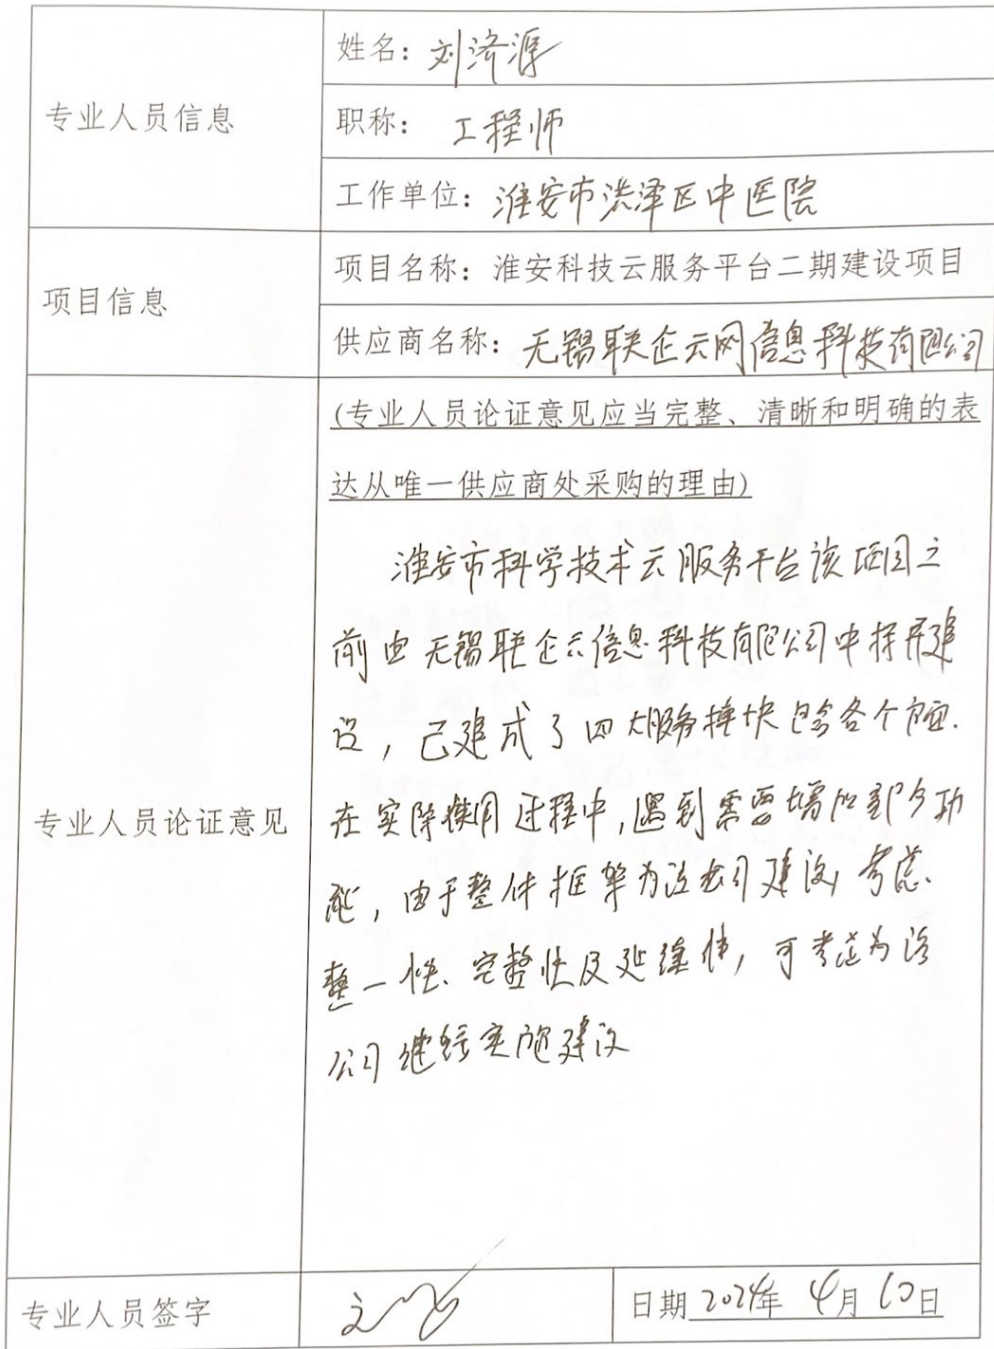 专业人员信息
姓名：刘济源
职称：工程师
工作单位：淮安市洪泽区中医院
项目信息
项目名称：淮安科技云服务平台二期建设项目
供应商名称：无锡联企云网信息科技有限公司
专业人员论证意见
(专业人员论证意见应当完整、清晰和明确的表
达从唯一供应商处采购的理由)
淮安市科学技术云服务平台该项目之
前由无锡联企云信息科技有限公司中标开建
设，已建成了四大服务模块包含各个方面.
在实际使用过程中,遇到需要增加部分功
能，由于整体框架为该公司建设,考虑、
整一性、完整性及延续性，可考虑为该
公司继续实施建设
专业人员签字
日期 2024年 4月 10日